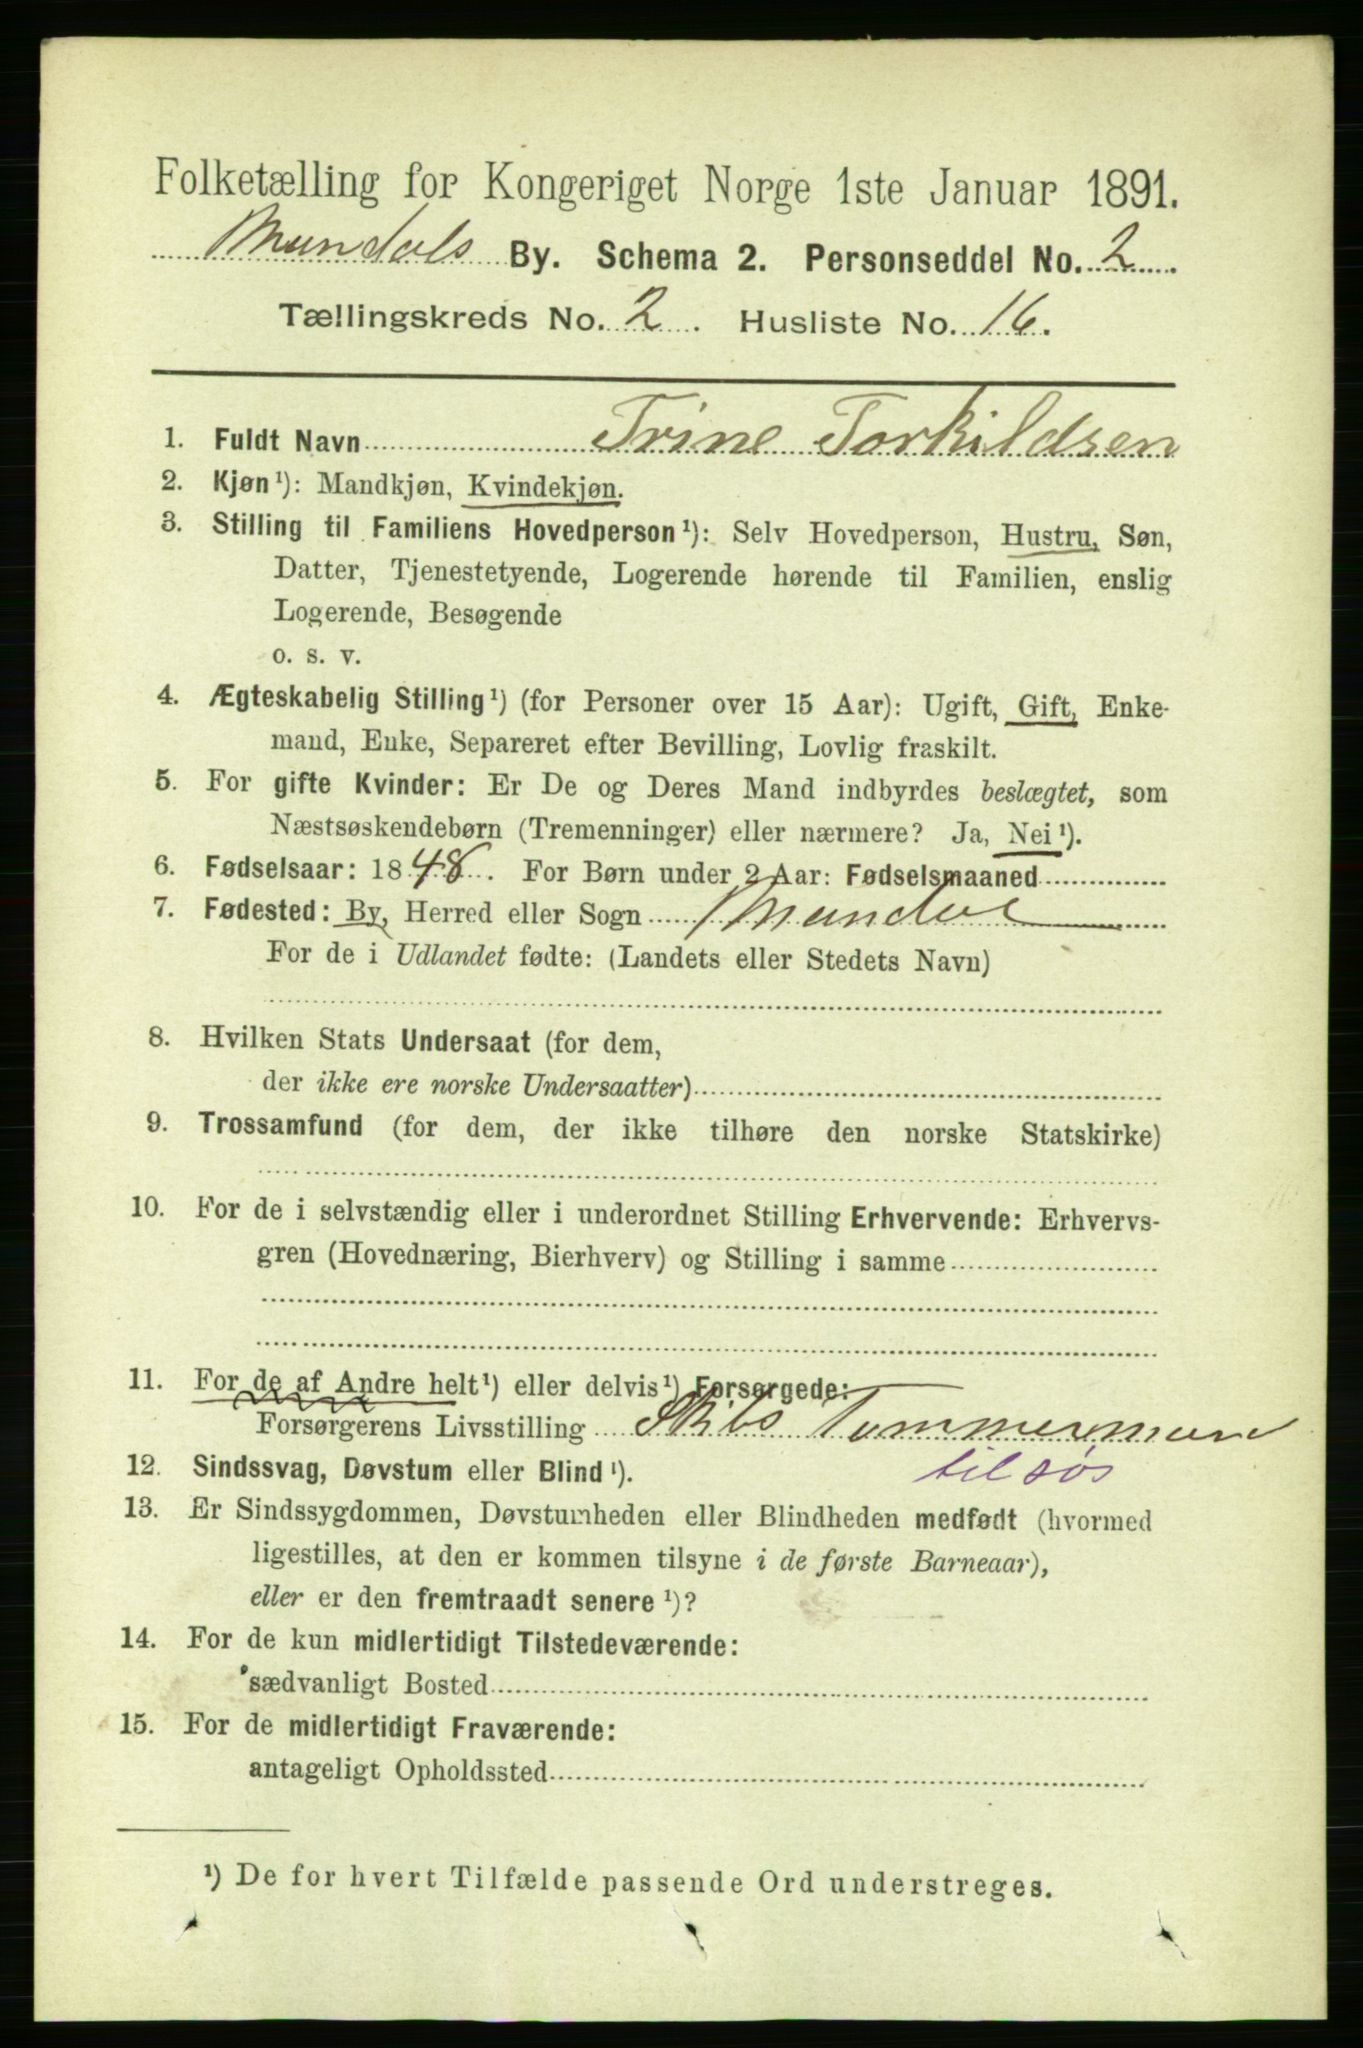 Folketælling for Kongeriget Norge 1ste Januar 1891.
Mandals By. Schema 2. Personseddel No. 2.
Tællingskreds No. 2. Husliste No. 16.
1. Fuldt Navn Trine Torkildsen
2. Kjøn¹): Mandkjøn, Kvindekjøn.
3. Stilling til Familiens Hovedperson¹): Selv Hovedperson, Hustru, Søn,
Datter, Tjenestetyende, Logerende hørende til Familien, enslig
Logerende, Besøgende
o. s. v.
4. Ægteskabelig Stilling¹) (for Personer over 15 Aar): Ugift, Gift, Enke-
mand, Enke, Separeret efter Bevilling, Lovlig fraskilt.
5. For gifte Kvinder: Er De og Deres Mand indbyrdes beslægtet, som
Næstsøskendebørn (Tremenninger) eller nærmere? Ja, Nei¹).
6. Fødselsaar: 1848. For Børn under 2 Aar: Fødselsmaaned
7. Fødested: By, Herred eller Sogn Mandal
For de i Udlandet fødte: (Landets eller Stedets Navn)
8. Hvilken Stats Undersaat (for dem,
der ikke ere norske Undersaatter)
9. Trossamfund (for dem, der ikke tilhøre den norske Statskirke)
10. For de i selvstændig eller i underordnet Stilling Erhvervende: Erhvervs-
gren (Hovednæring, Bierhverv) og Stilling i samme
11. For de af Andre helt¹) eller delvis¹) Forsørgede:
Forsørgerens Livsstilling Skibs Tømmermand
12. Sindssvag, Døvstum eller Blind¹). til søs
13. Er Sindssygdommen, Døvstumheden eller Blindheden medfødt (hvormed
ligestilles, at den er kommen tilsyne i de første Barneaar),
eller er den fremtraadt senere¹)?
14. For de kun midlertidigt Tilstedeværende:
sædvanligt Bosted
15. For de midlertidigt Fraværende:
antageligt Opholdssted
¹) De for hvert Tilfælde passende Ord understreges.